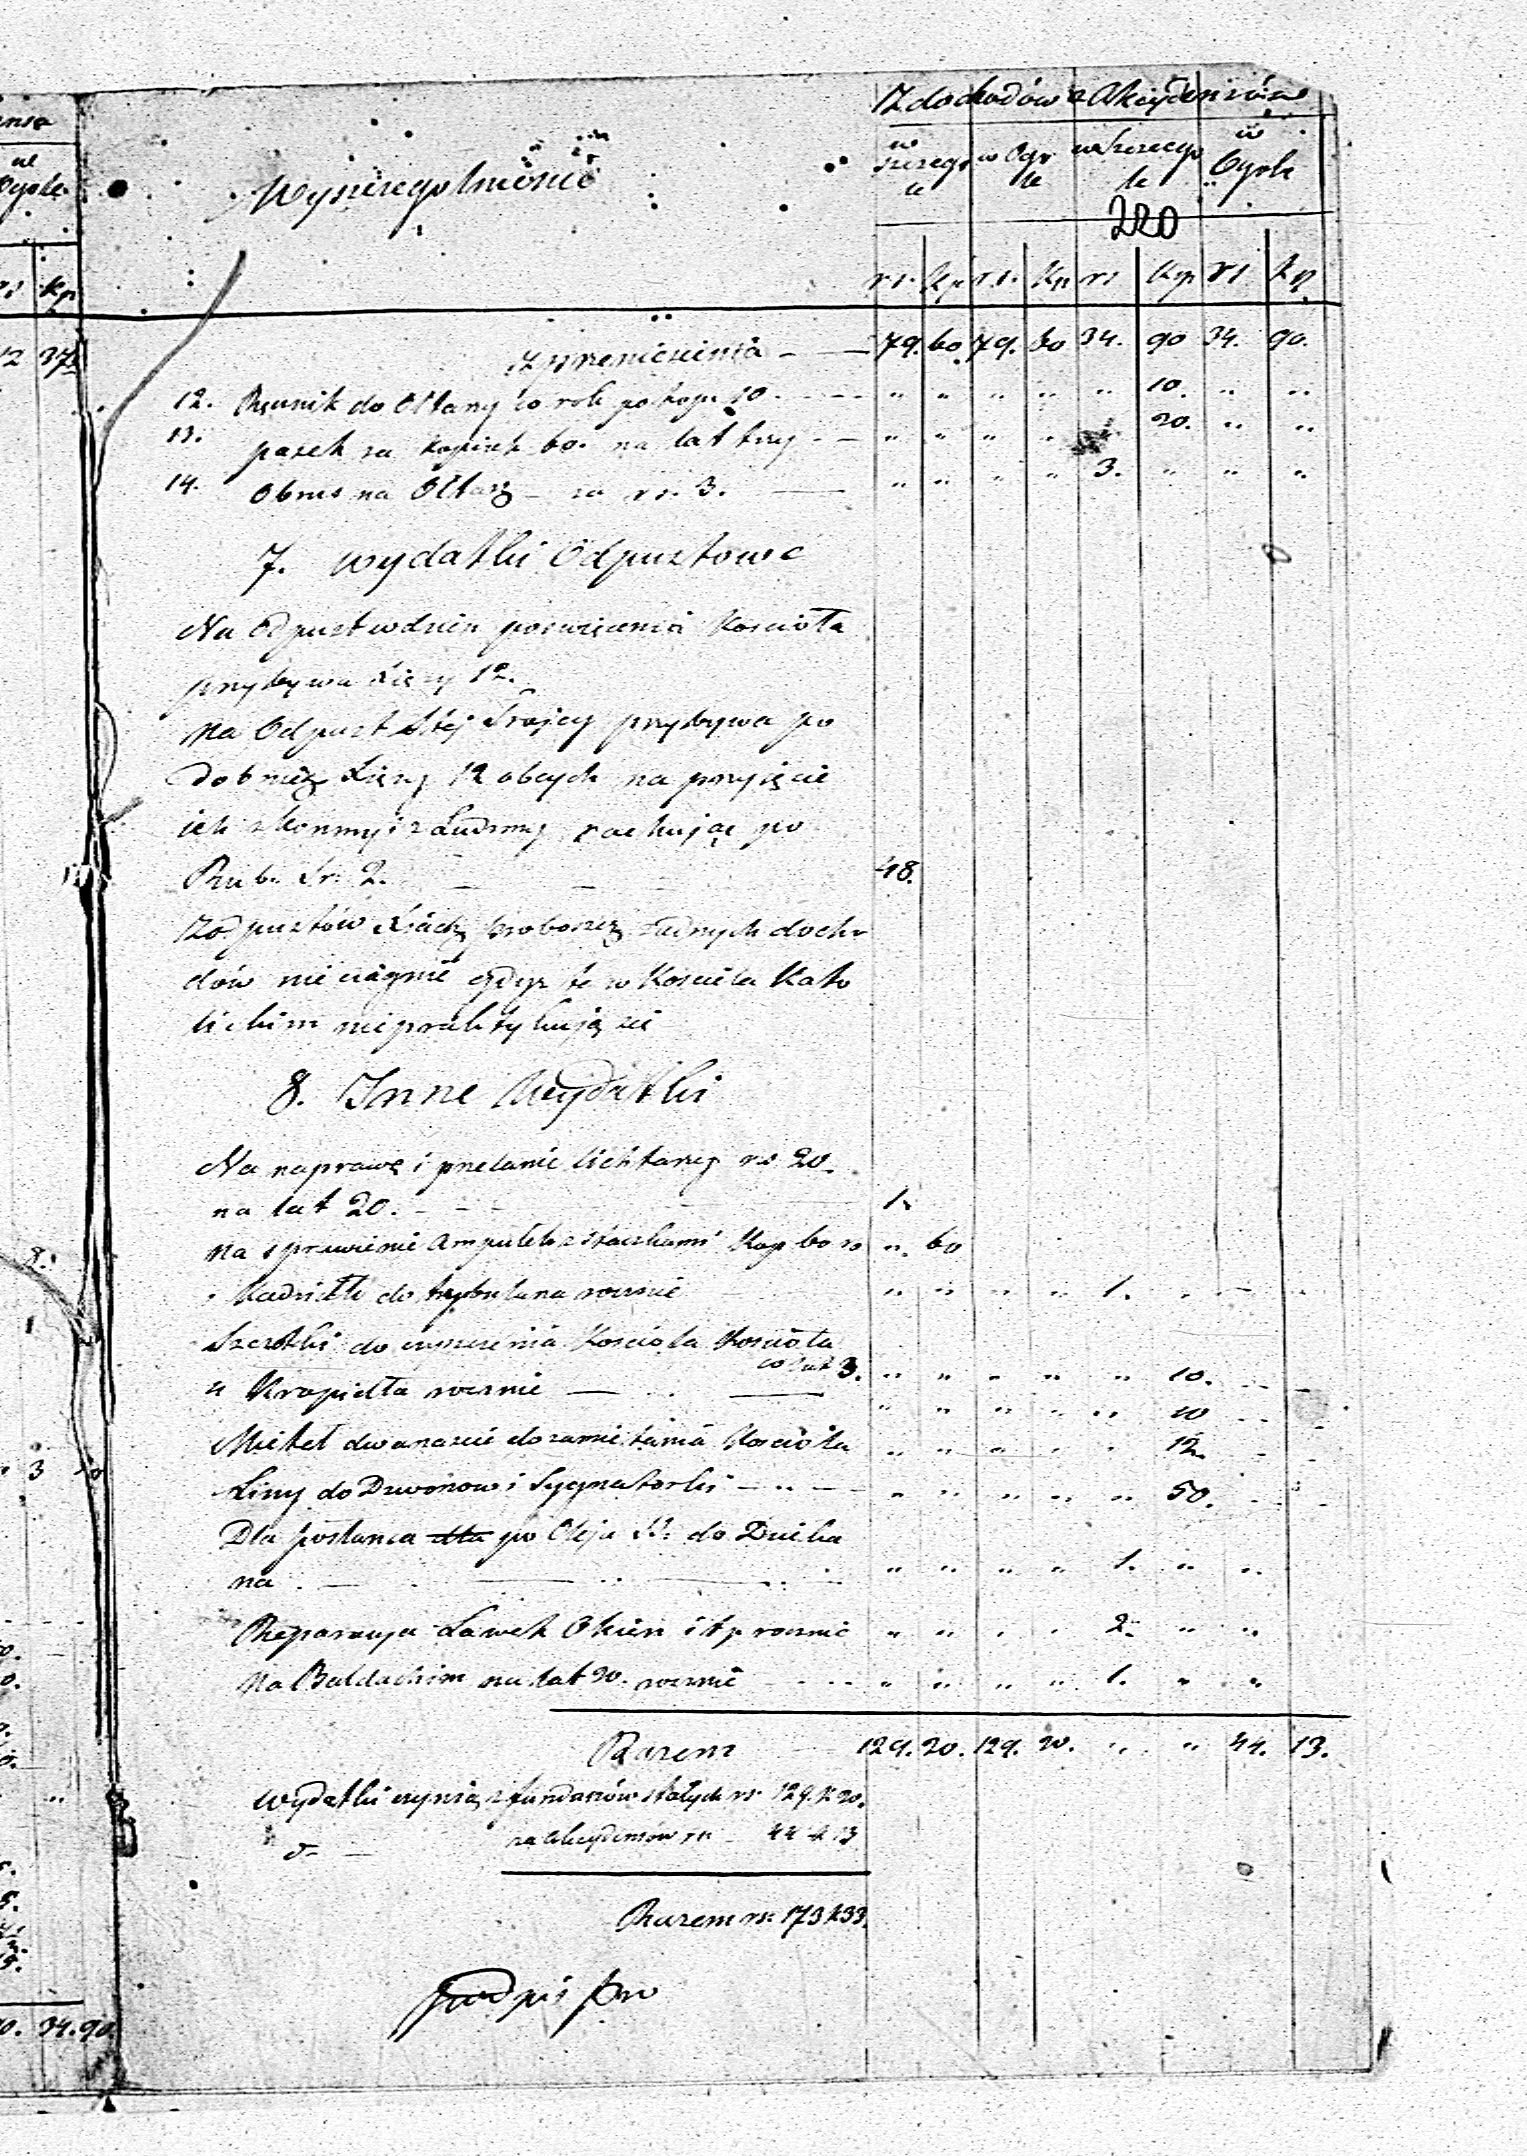 Z dochodów z Akcydensów
Wyszczególnienie
w szczegó le
w Ogó le
w szczegó le
w Ogóle
220
rs. kp rs. kp rs kp rs kp
z przeniesienia — 79. 60. 79. 60 34. 90 34. 90.
12. Ręcznik do Ołtarzy co rok po kop: 10. — " " " " " 10. " "
13. pasek za kopiek 60. na lat trzy — " " " " " 20. " "
14. Obrus na Ołtarz — za rs. 3. — " " " " 3. " " "
7. Wydatki Odpustowe
Na Odpust w dzień poświęcenia Kościoła
przybywa Xięży 12.
Na Odpust Stej Trojcy przybywa po
dobnież Xięży 12 obcych na przyjęcie
ich z konmy i z Ludzmy rachując po
Rub. Sr: 2. — — 48.
Z Odpustów Xiądz proboszcz żadnych docho
dów nie ciągnie gdyż te w Kościele Kato
lickim nie praktykują się
8. Inne Wydatki
Na naprawę i przelanie lichtarzy rs 20.
na lat 20. — — 1.
Na sprawienie Ampułek z staczkami Kop 60 ro ". 60
Kadzidło do trybularza rocznie " " " " 1. . — .
Szczotki do czyszczenia Kościoła Kościoła
co lat 3. " " " " " 10. — —
" Kropidła rocznie — . — " " " " " 10 . . .
Mioteł dwanaście do zamiatania Kościoła " " " " " 12. .
Liny do Dzwonow i Sygnaturki — " — " " " " " 50. . .
Dla posłańca dla po Oleje SS: do Dzieka
na . — . — .. — .. " " " " 1. " "
Reparacya Ławek Okien i t p rocznie " " . . 2. " "
Na Baldachim na lat 20. rocznie — " " " " 1. " "
Razem — 129. 20. 129. 20. " " 44. 13.
Wydatki czynią z funduszów stałych rs. 129. k 20.
d- — za Akcydensów rs — 44 k 13
Razem rs: 173 k 33
Podpis